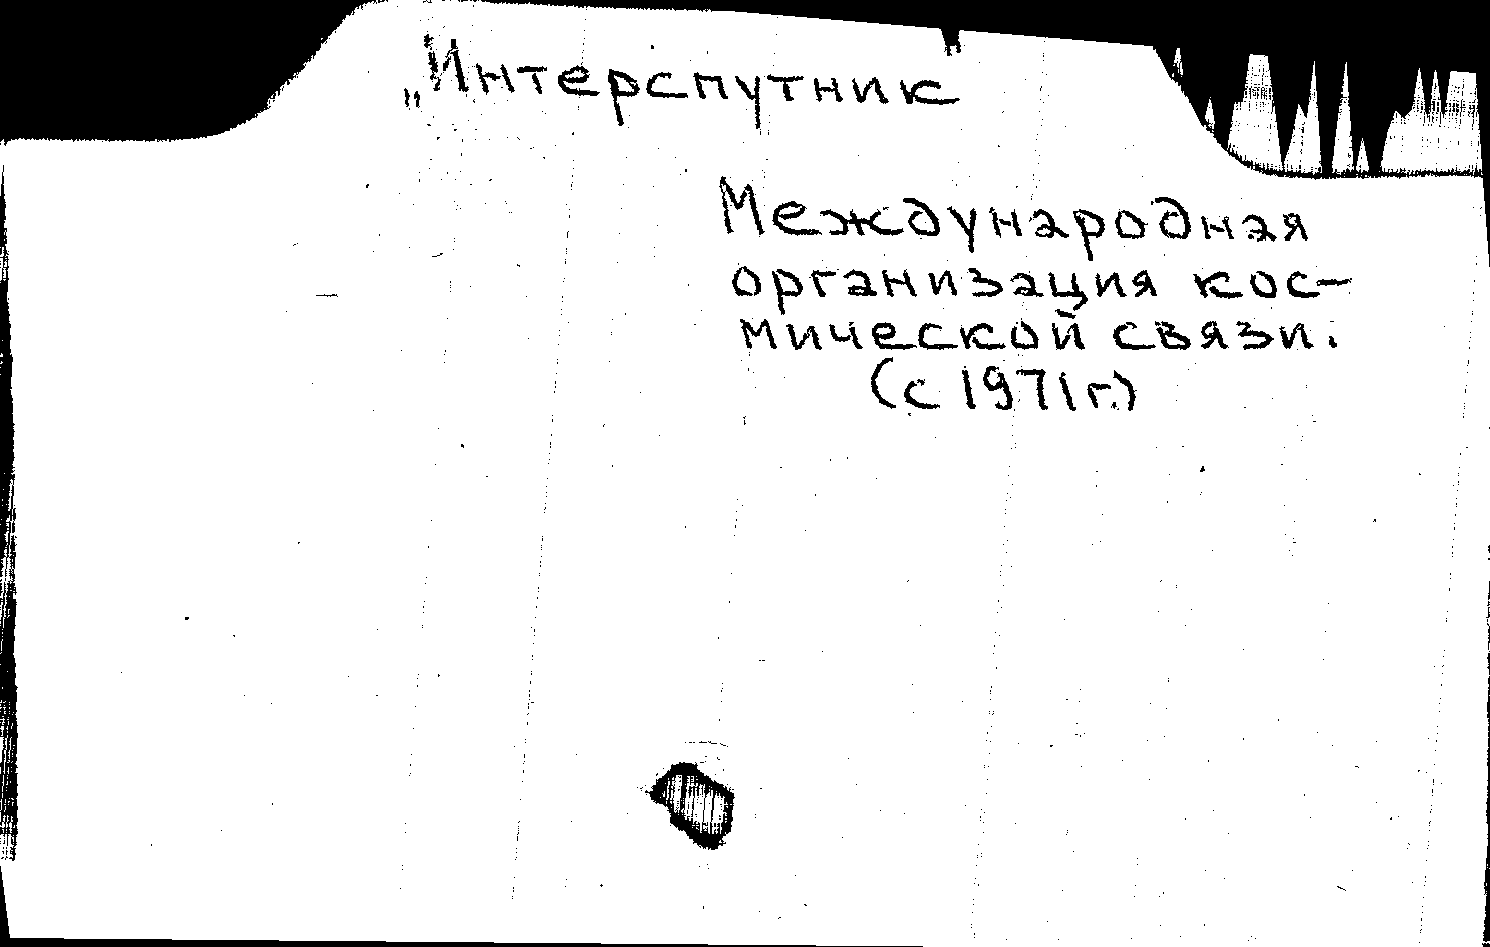 „Интерспутник
Международная
организация кос-
мической связи.
(с 1971 г.)